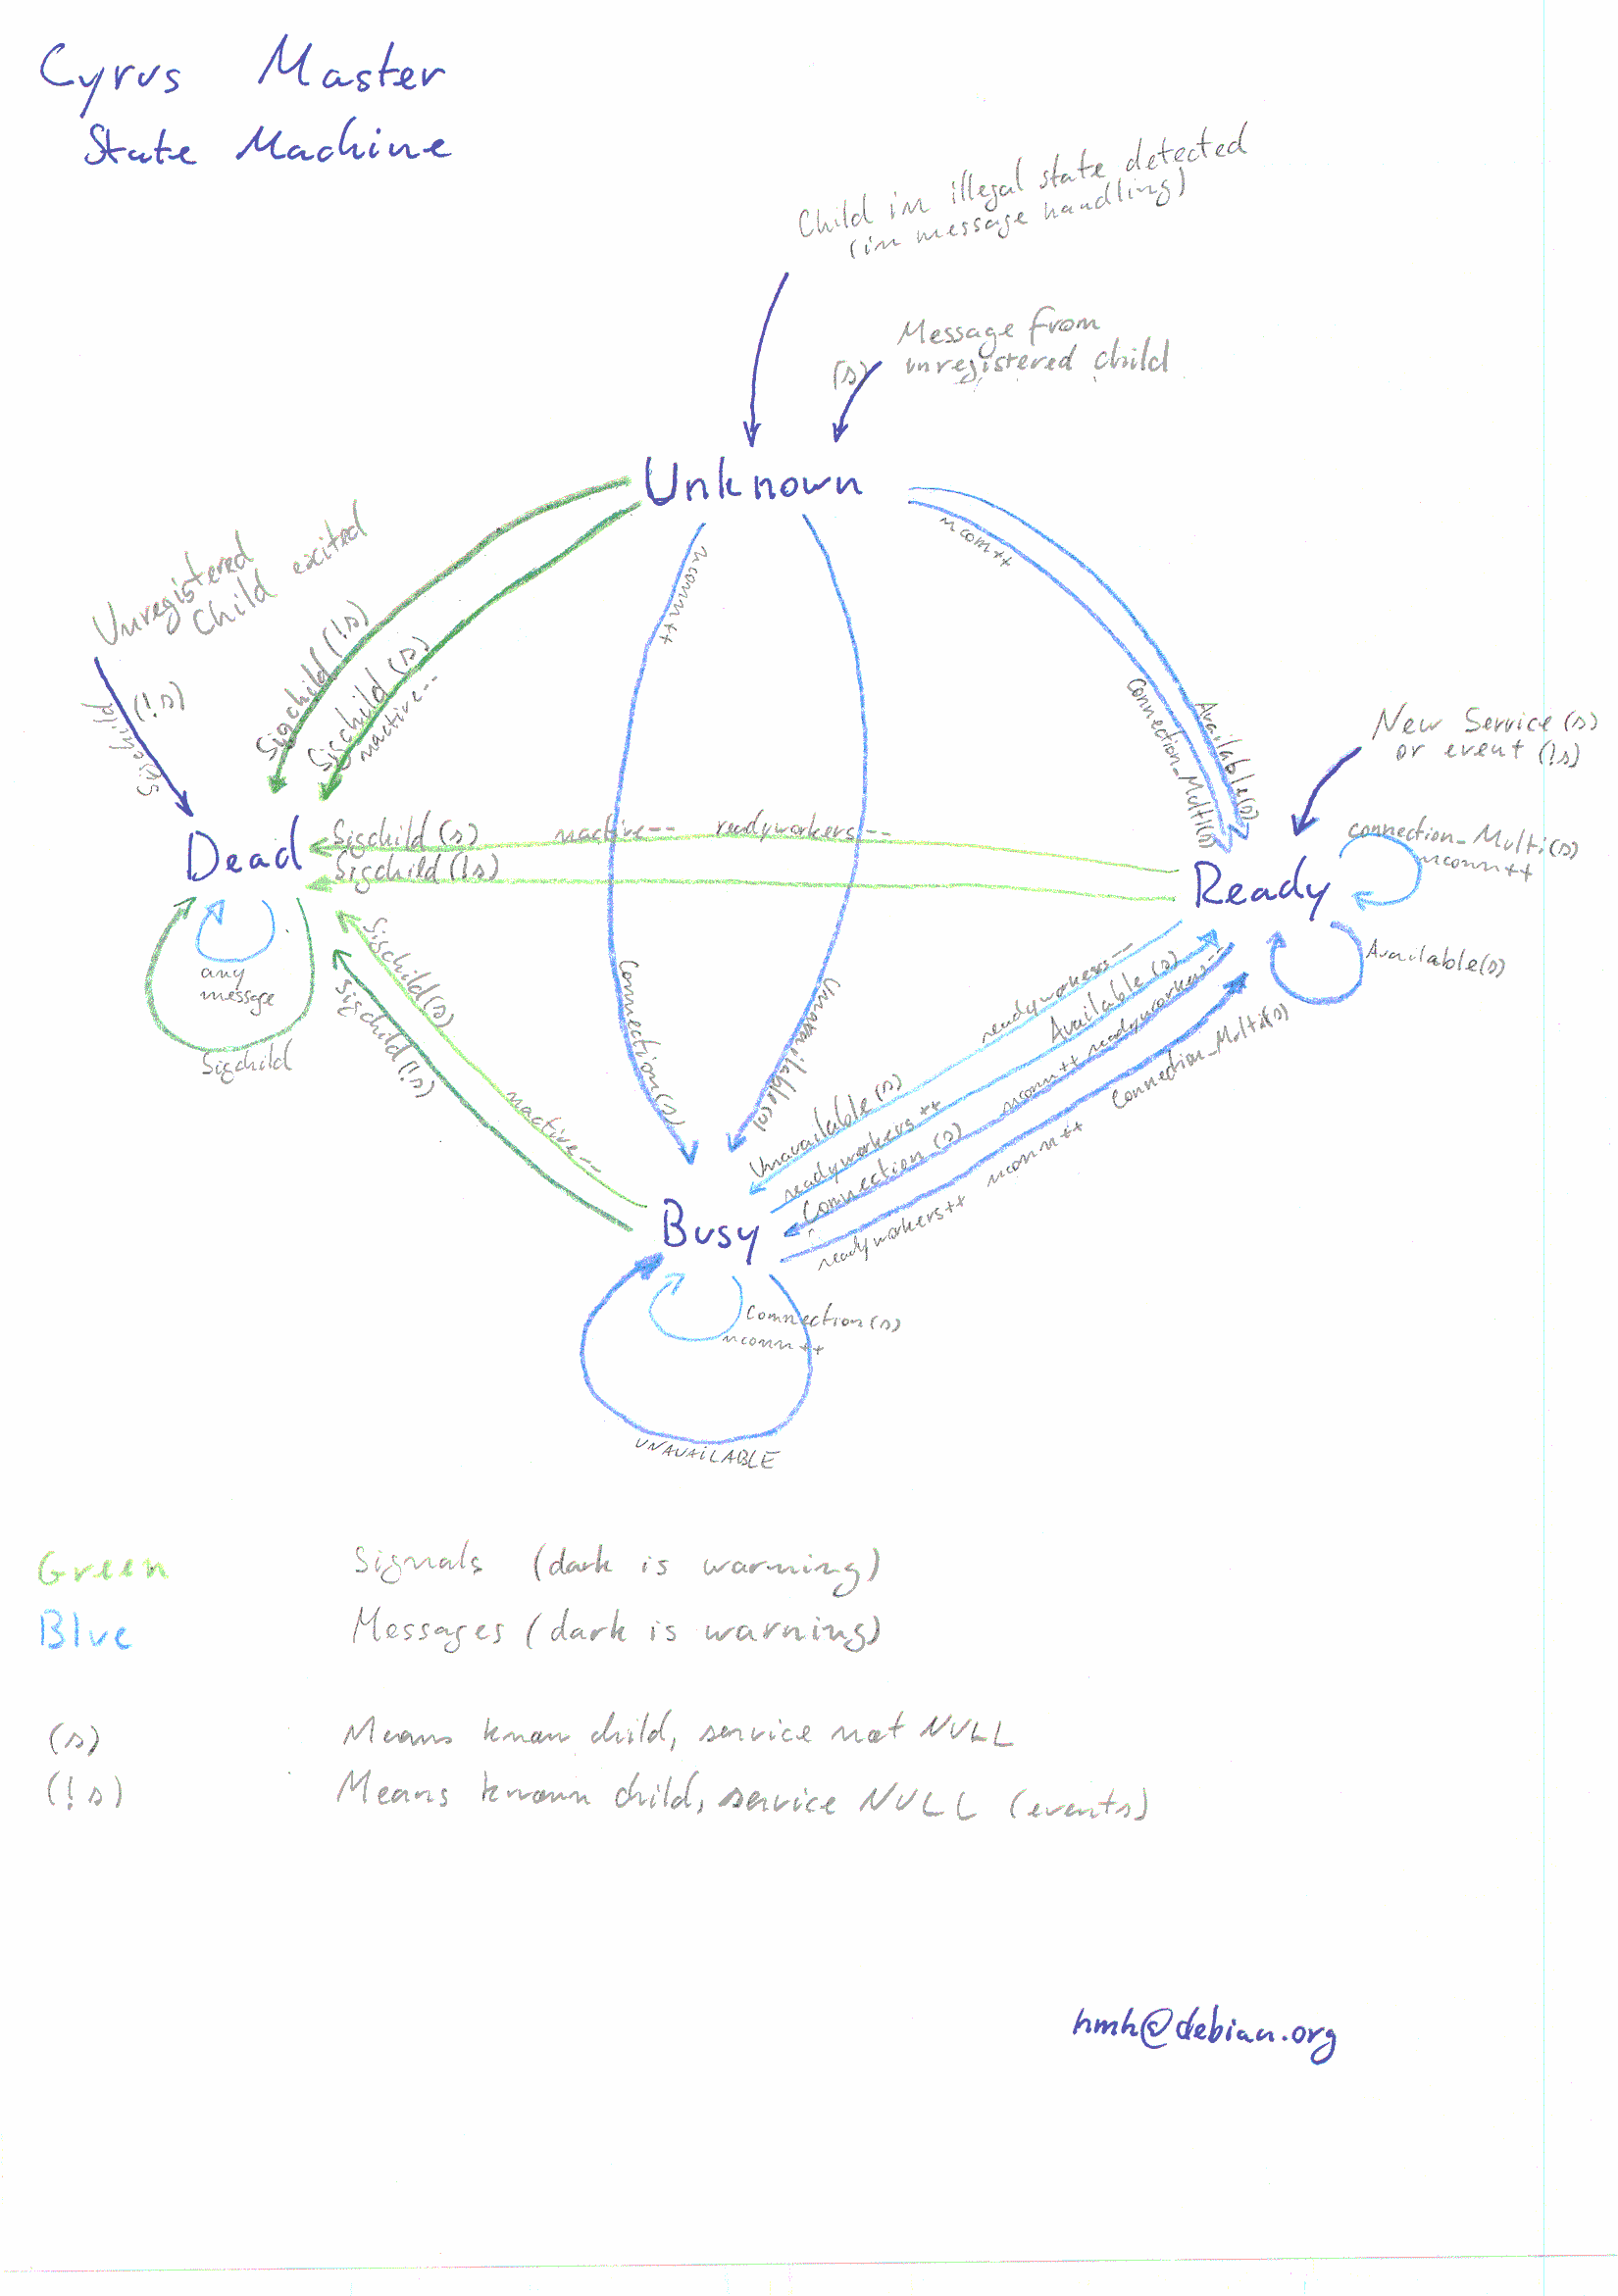 Cyrus Master
State Machine
Child in illegal state detected
(in message handling)
Message from
(s) unregistered child
Unknown
Unregistered
Child exited
Sigchild (!s)
Sigchild (!s)
Sigchild (s)
nactive--
nconn++
nconn++
Connection_Multi(s)
Available(s)
New Service (s)
or event (!s)
Dead
Sigchild (s) nactive-- readyworkers--
Sigchild (!s)
Ready
connection_Multi(s)
nconn++
Available(s)
any
message
Sigchild
Sigchild(s)
nactive--
Sigchild(!s)
Connection(s)
Unavailable(s)
Unavailable(s) readyworkers--
readyworkers++ Available(s)
Connection (s) nconn++ readyworkers--
readyworkers++ nconn++ Connection_Multi(s)
Busy
Connection(s)
nconn++
UNAVAILABLE
Green Signals (dark is warning)
Blue Messages (dark is warning)
(s) Means know child, service not NULL
(!s) Means known child, service NULL (events)
hmh@debian.org